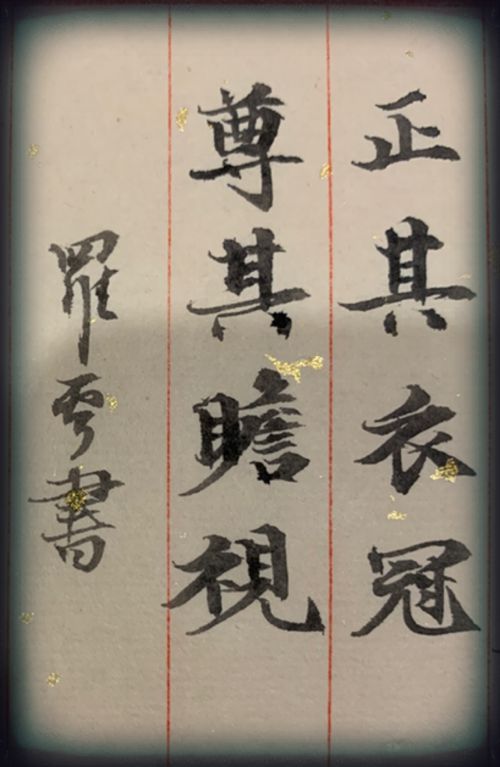 正其衣冠
尊其瞻視
羅雲書